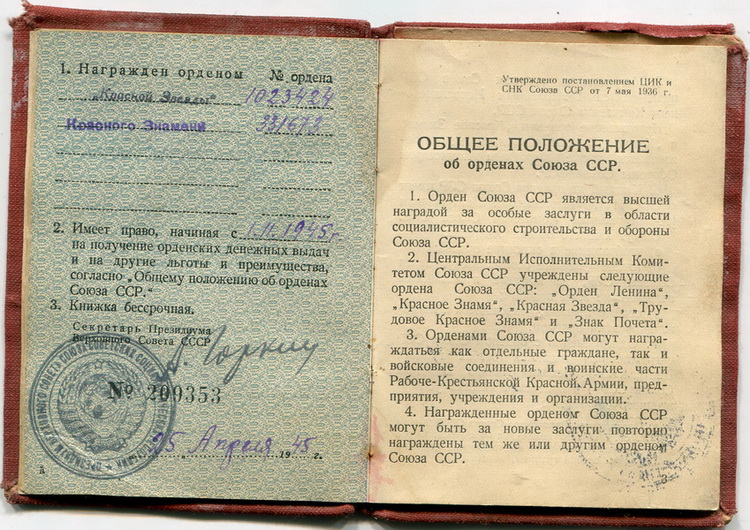 1. Награжден орденом № ордена
„Красной Звезды" 1023424
Красного Знамени 331672
2. Имеет право, начиная с 1.II.1945 г.
на получение орденских денежных выдач
и на другие льготы и преимущества,
согласно „Общему положению об орденах
Союза ССР.“
3. Книжка бессрочная.
Секретарь Президиума
Верховного Совета СССР
А. Горкин
№ 200353
25 Апреля 1945 г.
Утверждено постановлением ЦИК и
СНК Союза ССР от 7 мая 1936 г.
ОБЩЕЕ ПОЛОЖЕНИЕ
об орденах Союза ССР.
1. Орден Союза ССР является высшей
наградой за особые заслуги в области
социалистического строительства и обороны
Союза ССР.
2. Центральным Исполнительным Коми-
тетом Союза ССР учреждены следующие
ордена Союза ССР: „Орден Ленина“,
„Красное Знамя“, „Красная Звезда“, „Тру-
довое Красное Знамя“ и „Знак Почета“.
3. Орденами Союза ССР могут награ-
ждаться как отдельные граждане, так и
войсковые соединения и воинские части
Рабоче-Крестьянской Красной Армии, пред-
приятия, учреждения и организации.
4. Награжденные орденом Союза ССР
могут быть за новые заслуги повторно
награждены тем же или другим орденом
Союза ССР.